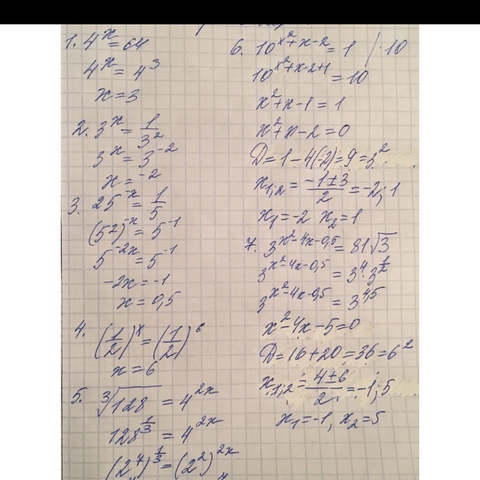 1. 4^x = 64
4^x = 4^3
x = 3
2. 3^x = 1/3^2
3^x = 3^-2
x = -2
3. 25^-x = 1/5
(5^2)^-x = 5^-1
5^-2x = 5^-1
-2x = -1
x = 0,5
4. (1/2)^x = (1/2)^6
x = 6
5. ∛128 = 4^2x
128^1/3 = 4^2x
(2^7)^1/3 = (2^2)^2x
6. 10^x²+x-2 = 1 | · 10
10^x²+x-2+1 = 10
x² + x - 1 = 1
x² + x - 2 = 0
D = 1 - 4(-2) = 9 = 3²
x1;2 = (-1 ± 3)/2 = -2; 1
x1 = -2 x2 = 1
7. 3^x²-4x-0,5 = 81√3
3^x²-4x-0,5 = 3^4 · 3^1/2
3^x²-4x-0,5 = 3^4,5
x² - 4x - 5 = 0
D = 16 + 20 = 36 = 6²
x1;2 = (4 ± 6)/2 = -1; 5
x1 = -1, x2 = 5